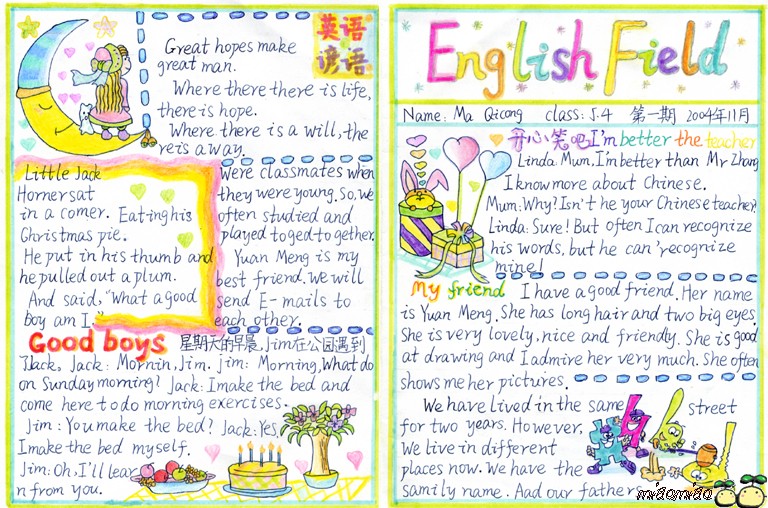 英语
谚语
Great hopes make
great man.
Where there there is life,
there is hope.
Where there is a will, the
re is a way.
Little Jack
Horner sat
in a comer. Eating his
Christmas pie.
He put in his thumb and
he pulled out a plum.
And said, "what a good
boy am I."
were classmates when
they were young. So, we
often studied and
played toged to gether.
Yuan Meng is my
best friend. we will
send E-mails to
each other.
Good boys 星期天的早晨, Jim在公园遇到
了Jack, Jack: Mornin, Jim. jim: Morning, What do
on Sunday morning? Jack: I make the bed and
come here to do morning exercises.
Jim: You make the bed? Jack: Yes,
I make the bed myself.
Jim: Oh, I'll lear
n from you.
English Field
Name: Ma Qicong class: 5.4 第一期 2004年11月
开心笑吧 I'm better the teacher
Linda Mum, I'm better than Mr Zhang
I know more about Chinese.
Mum: Why? Isn't he your Chinese teacher
Linda: Sure! But often I can recognize
his words, but he can 'recognize
mine!
My friend I have a good friend. Her name
is Yuan Meng. She has long hair and two big eyes.
She is very lovely, nice and friendly. She is good
at drawing and I admire her very much. She often
shows me her pictures.
We have lived in the same street
for two years. However,
we live in different
places now. We have the
samily name. Aad our fathers
miaomiao